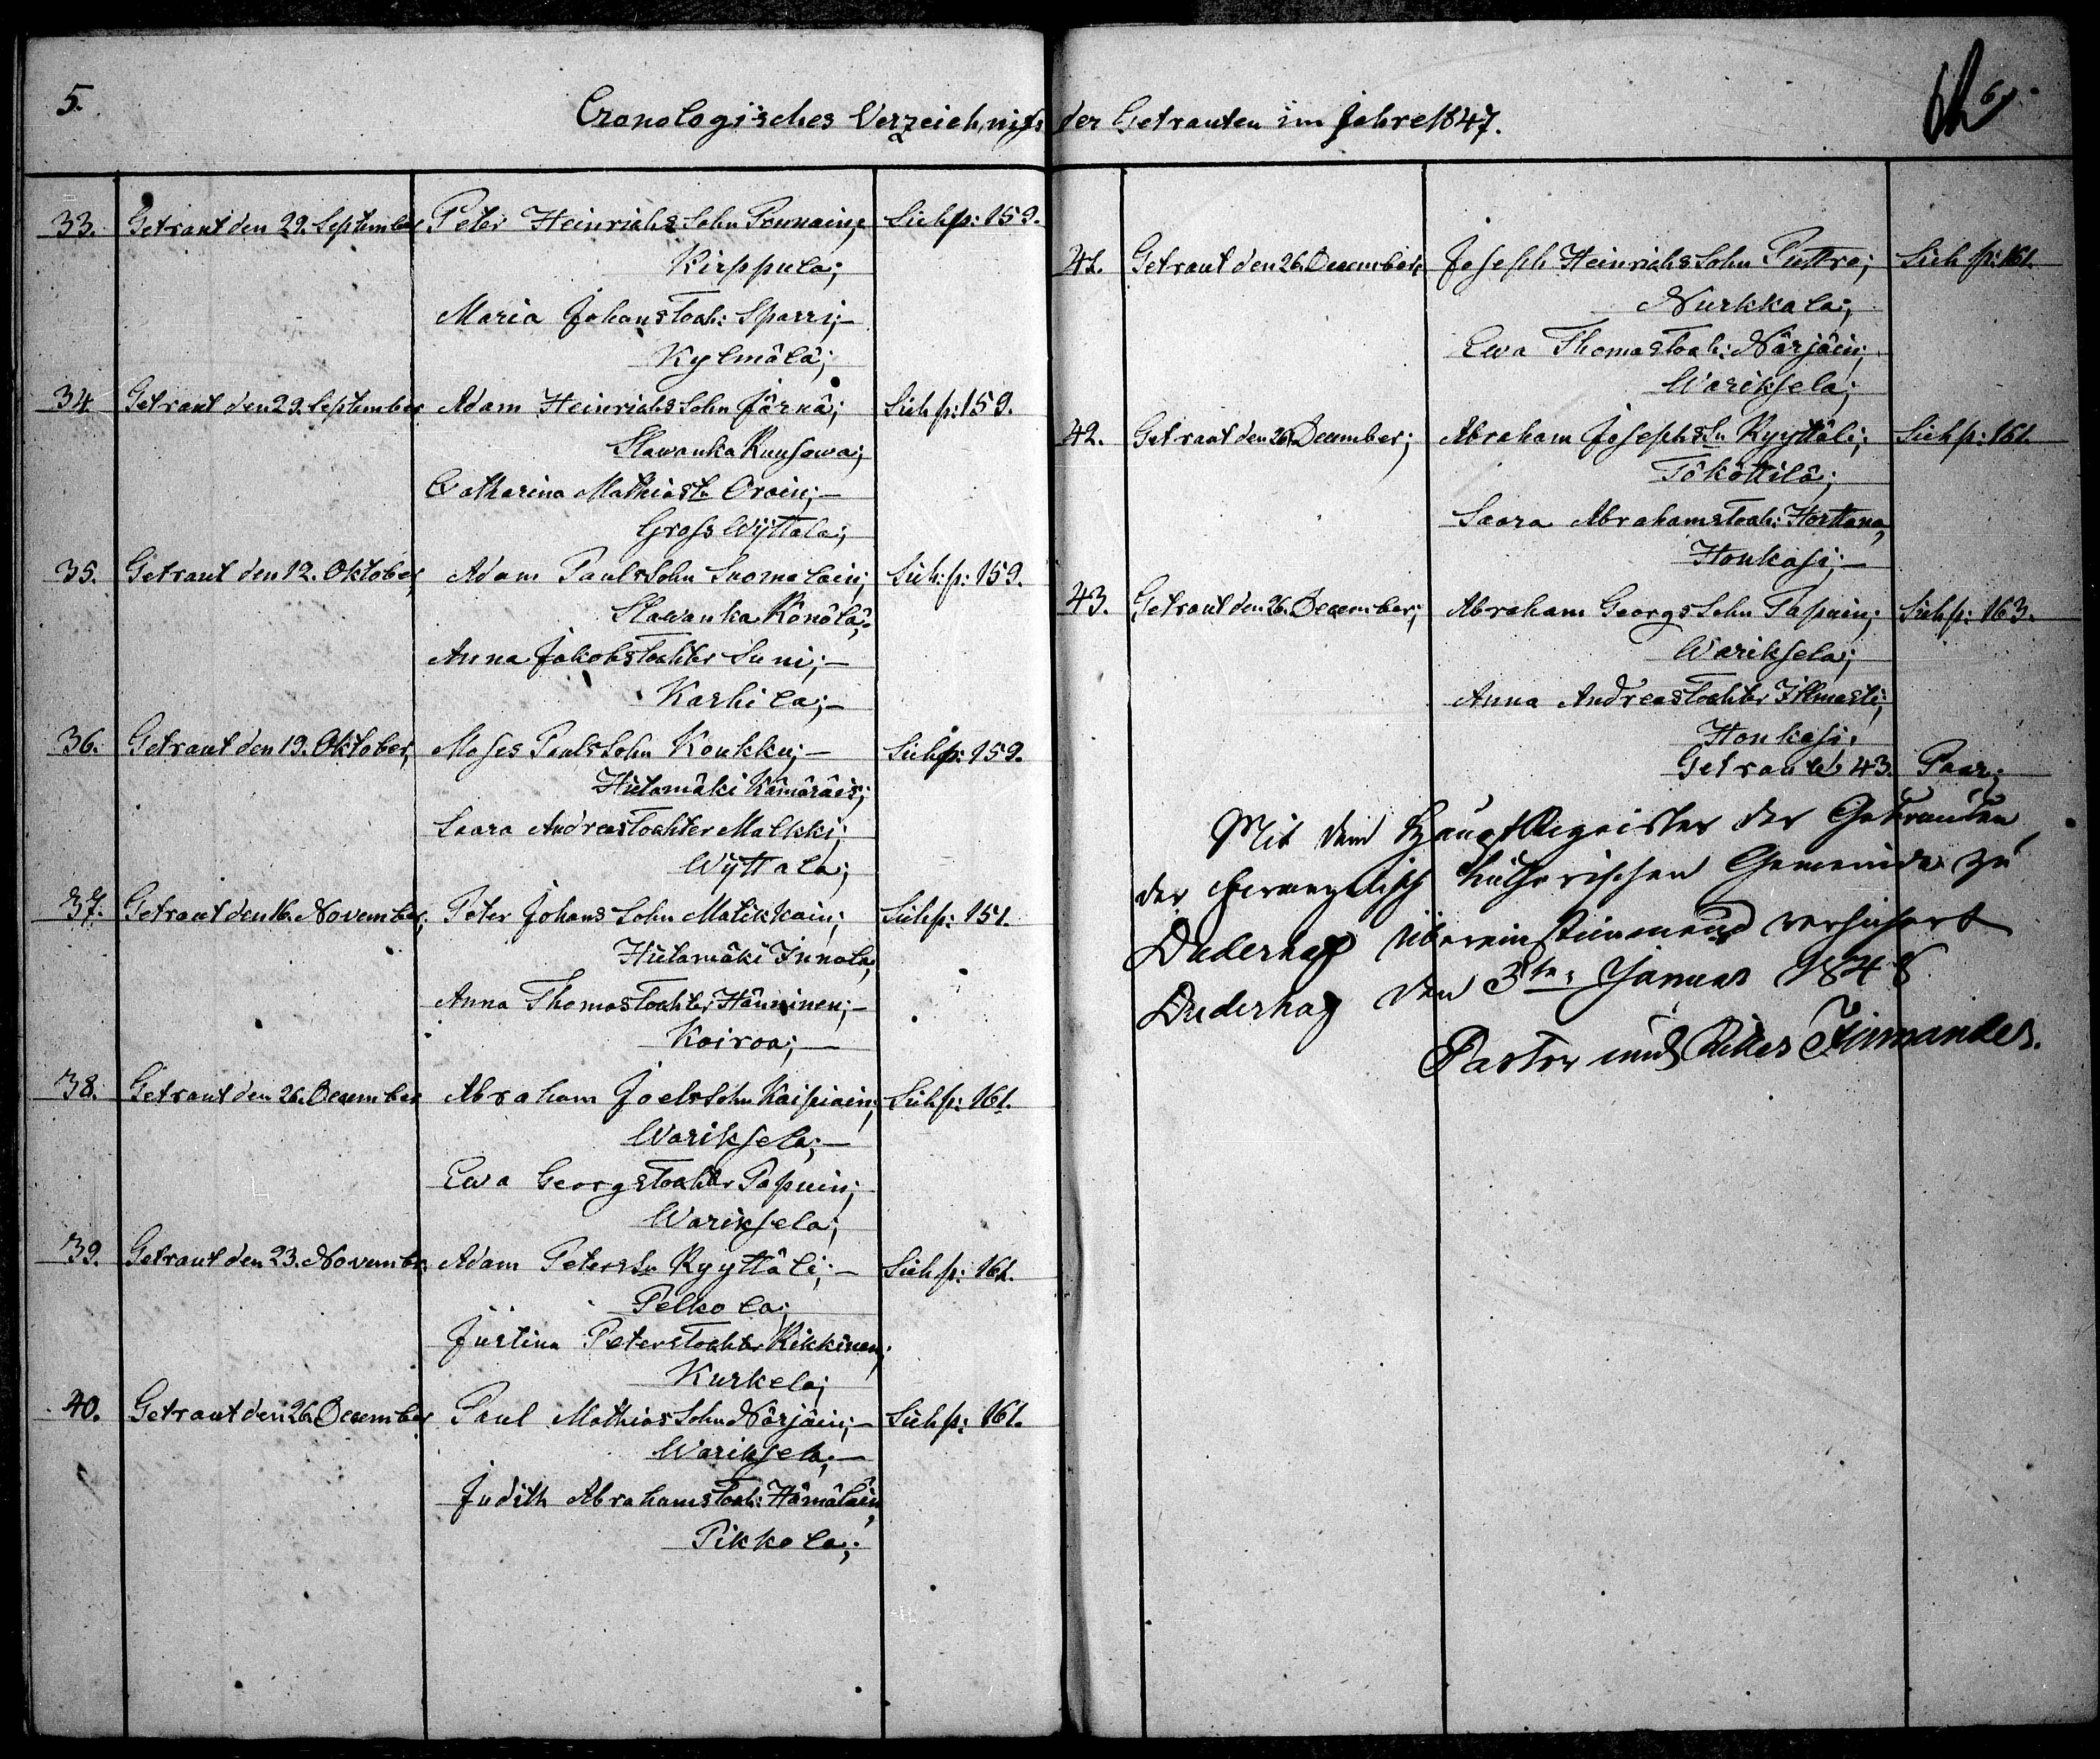 5.
Cronologisches Verzeichniss der Getrauten im Jahre 1847.
6.
33. Getraut den 29. September Peter Heinrichs Sohn Ponnain; Sieh p: 159.
Kirppula;
Maria Johans Toch: Sparri;—
Kylmälä;
34 Getraut den 29. September Adam Heinrichs Sohn Järnä; Sieh p: 159.
Slawanka Ruusowa;
Catharina Mathias Tr Orain;—
Gross Wÿttala;
35. Getraut den 12. Oktober, Adam Pauls Sohn Suomalain; Sieh: p: 159.
Slawanka Könölä;
Anna Jakobs Tochter Suni;—
Karhila;—
36. Getraut den 19. Oktober, Moses Pauls Sohn Koukku;— Sieh p: 159.
Hietamäki Kämäräis;
Saara Andreas Tochter Malkki;
Wÿttala;
37. Getraut den 16. November, Peter Johans Sohn Malikkain; Sieh p: 151.
Hietamäki Innola,
Anna Thomas Tochter Hänninen;—
Koiroa;—
38. Getraut den 26. December Abraham Joels Sohn Kaipiain; Sieh p: 161.
Wariksela;—
Ewa Georgs Tochter Papuin;
Wariksela;
39. Getraut den 23. November Adam Peters Sn Ryyttäli;— Sieh p: 161.
Pelkola;
Justina Peters Tochter Kikkinen;
Kurkela;
40. Getraut den 26. December Paul Mathias Sohn Närjäin;— Sieh p: 161.
Wariksela;—
Judith Abrahams Toch: Hämäläin,
Pikkola;
41. Getraut den 26. December; Joseph Heinrichs Sohn Puttro; Sieh p: 161.
Nurkkala;
Ewa Thomas Toch: Närjäin;
Wariksela;
42. Getraut den 26. December; Abraham Josephs Sn Ryyttäli; Sieh p: 161.
Tököttilä;
Saara Abrahams Toch: Horttana,
Honkasi;—
43. Getraut den 26. December; Abraham Georgs Sohn Papuin; Sieh p: 163.
Wariksela;
Anna Andreas Tochter Ihmasti;
Honkasi.
Getraute 43. Paar;
Mit dem Haupt Register der Getrauten
der Evangelisch Lutherischen Gemeinde zu
Duderhof übereinstimmend versichert
Duderhof den 3ten Januar 1848
Pastor und Ritter Hirmandes.